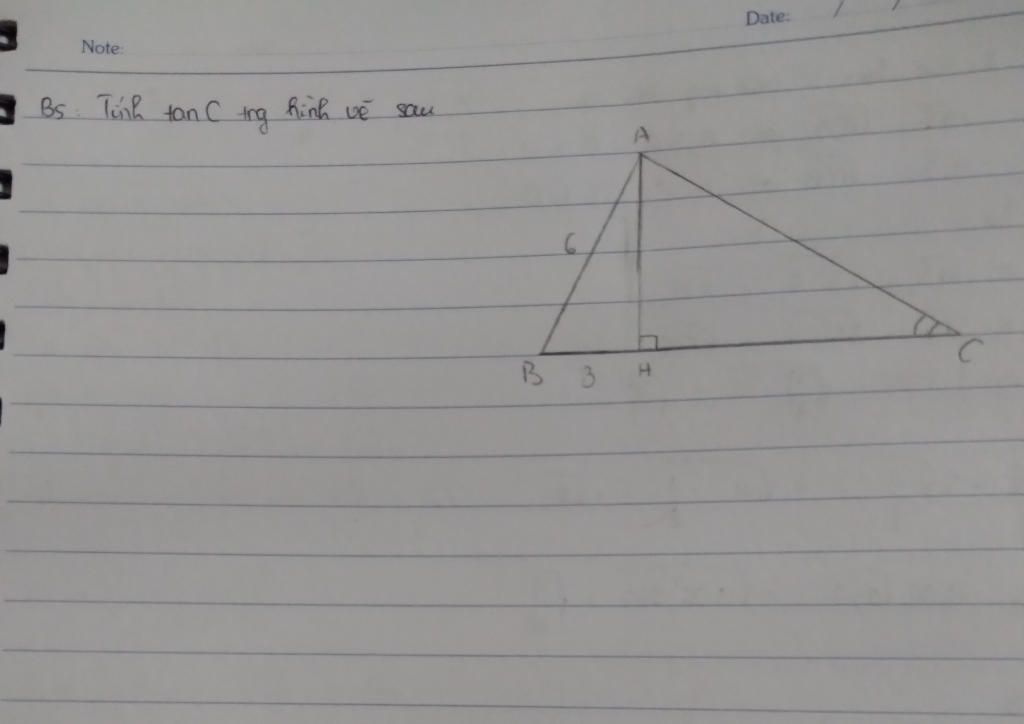 Date: / /
Note:
B5: Tính tanC trg hình vẽ sau
A
6
B 3 H C